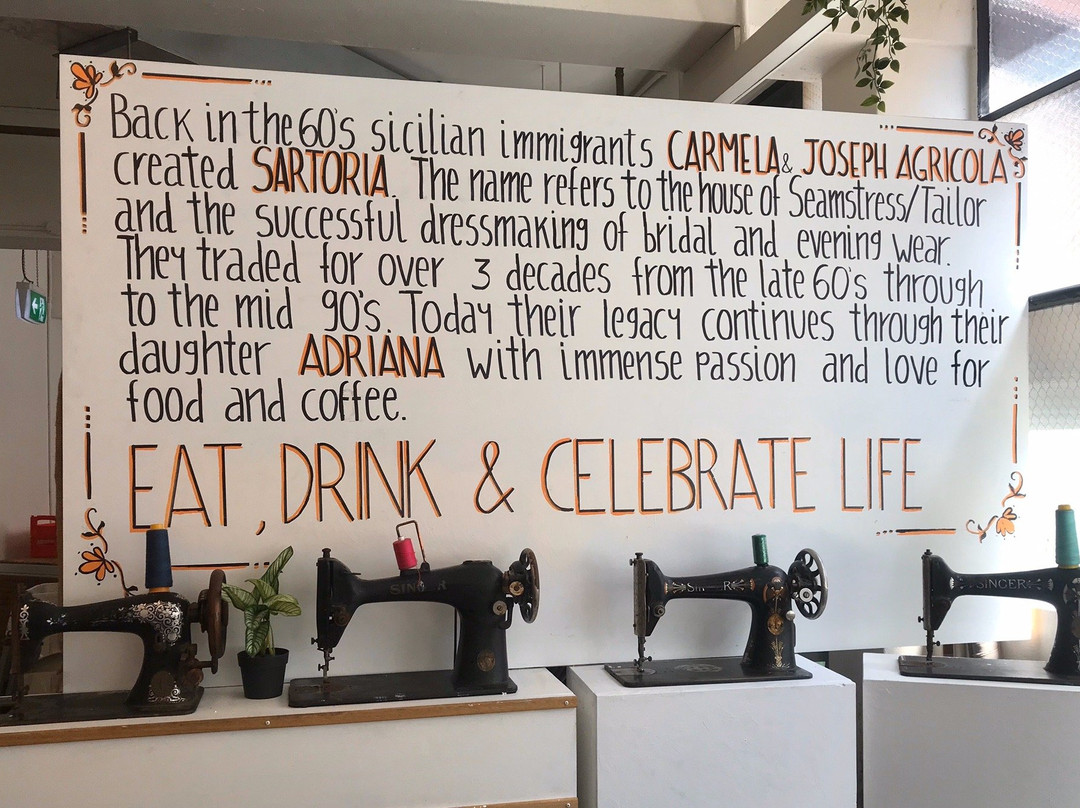 Back in the 60's sicilian immigrants CARMELA & JOSEPH AGRICOLA
created SARTORIA. The name refers to the house of Seamstress/Tailor
and the successful dressmaking of bridal and evening wear.
They traded for over 3 decades from the late 60's through
to the mid 90's. Today their legacy continues through their
daughter ADRIANA with immense passion and love for
food and coffee.
EAT, DRINK & CELEBRATE LIFE
SINGER
SINGER
SINGER